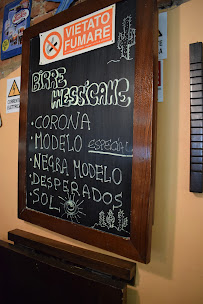 VIETATO
FUMARE
BIRRE
MESSICANE
• CORONA
• MODELO ESPECIAL
• NEGRA MODELO
• DESPERADOS
• SOL